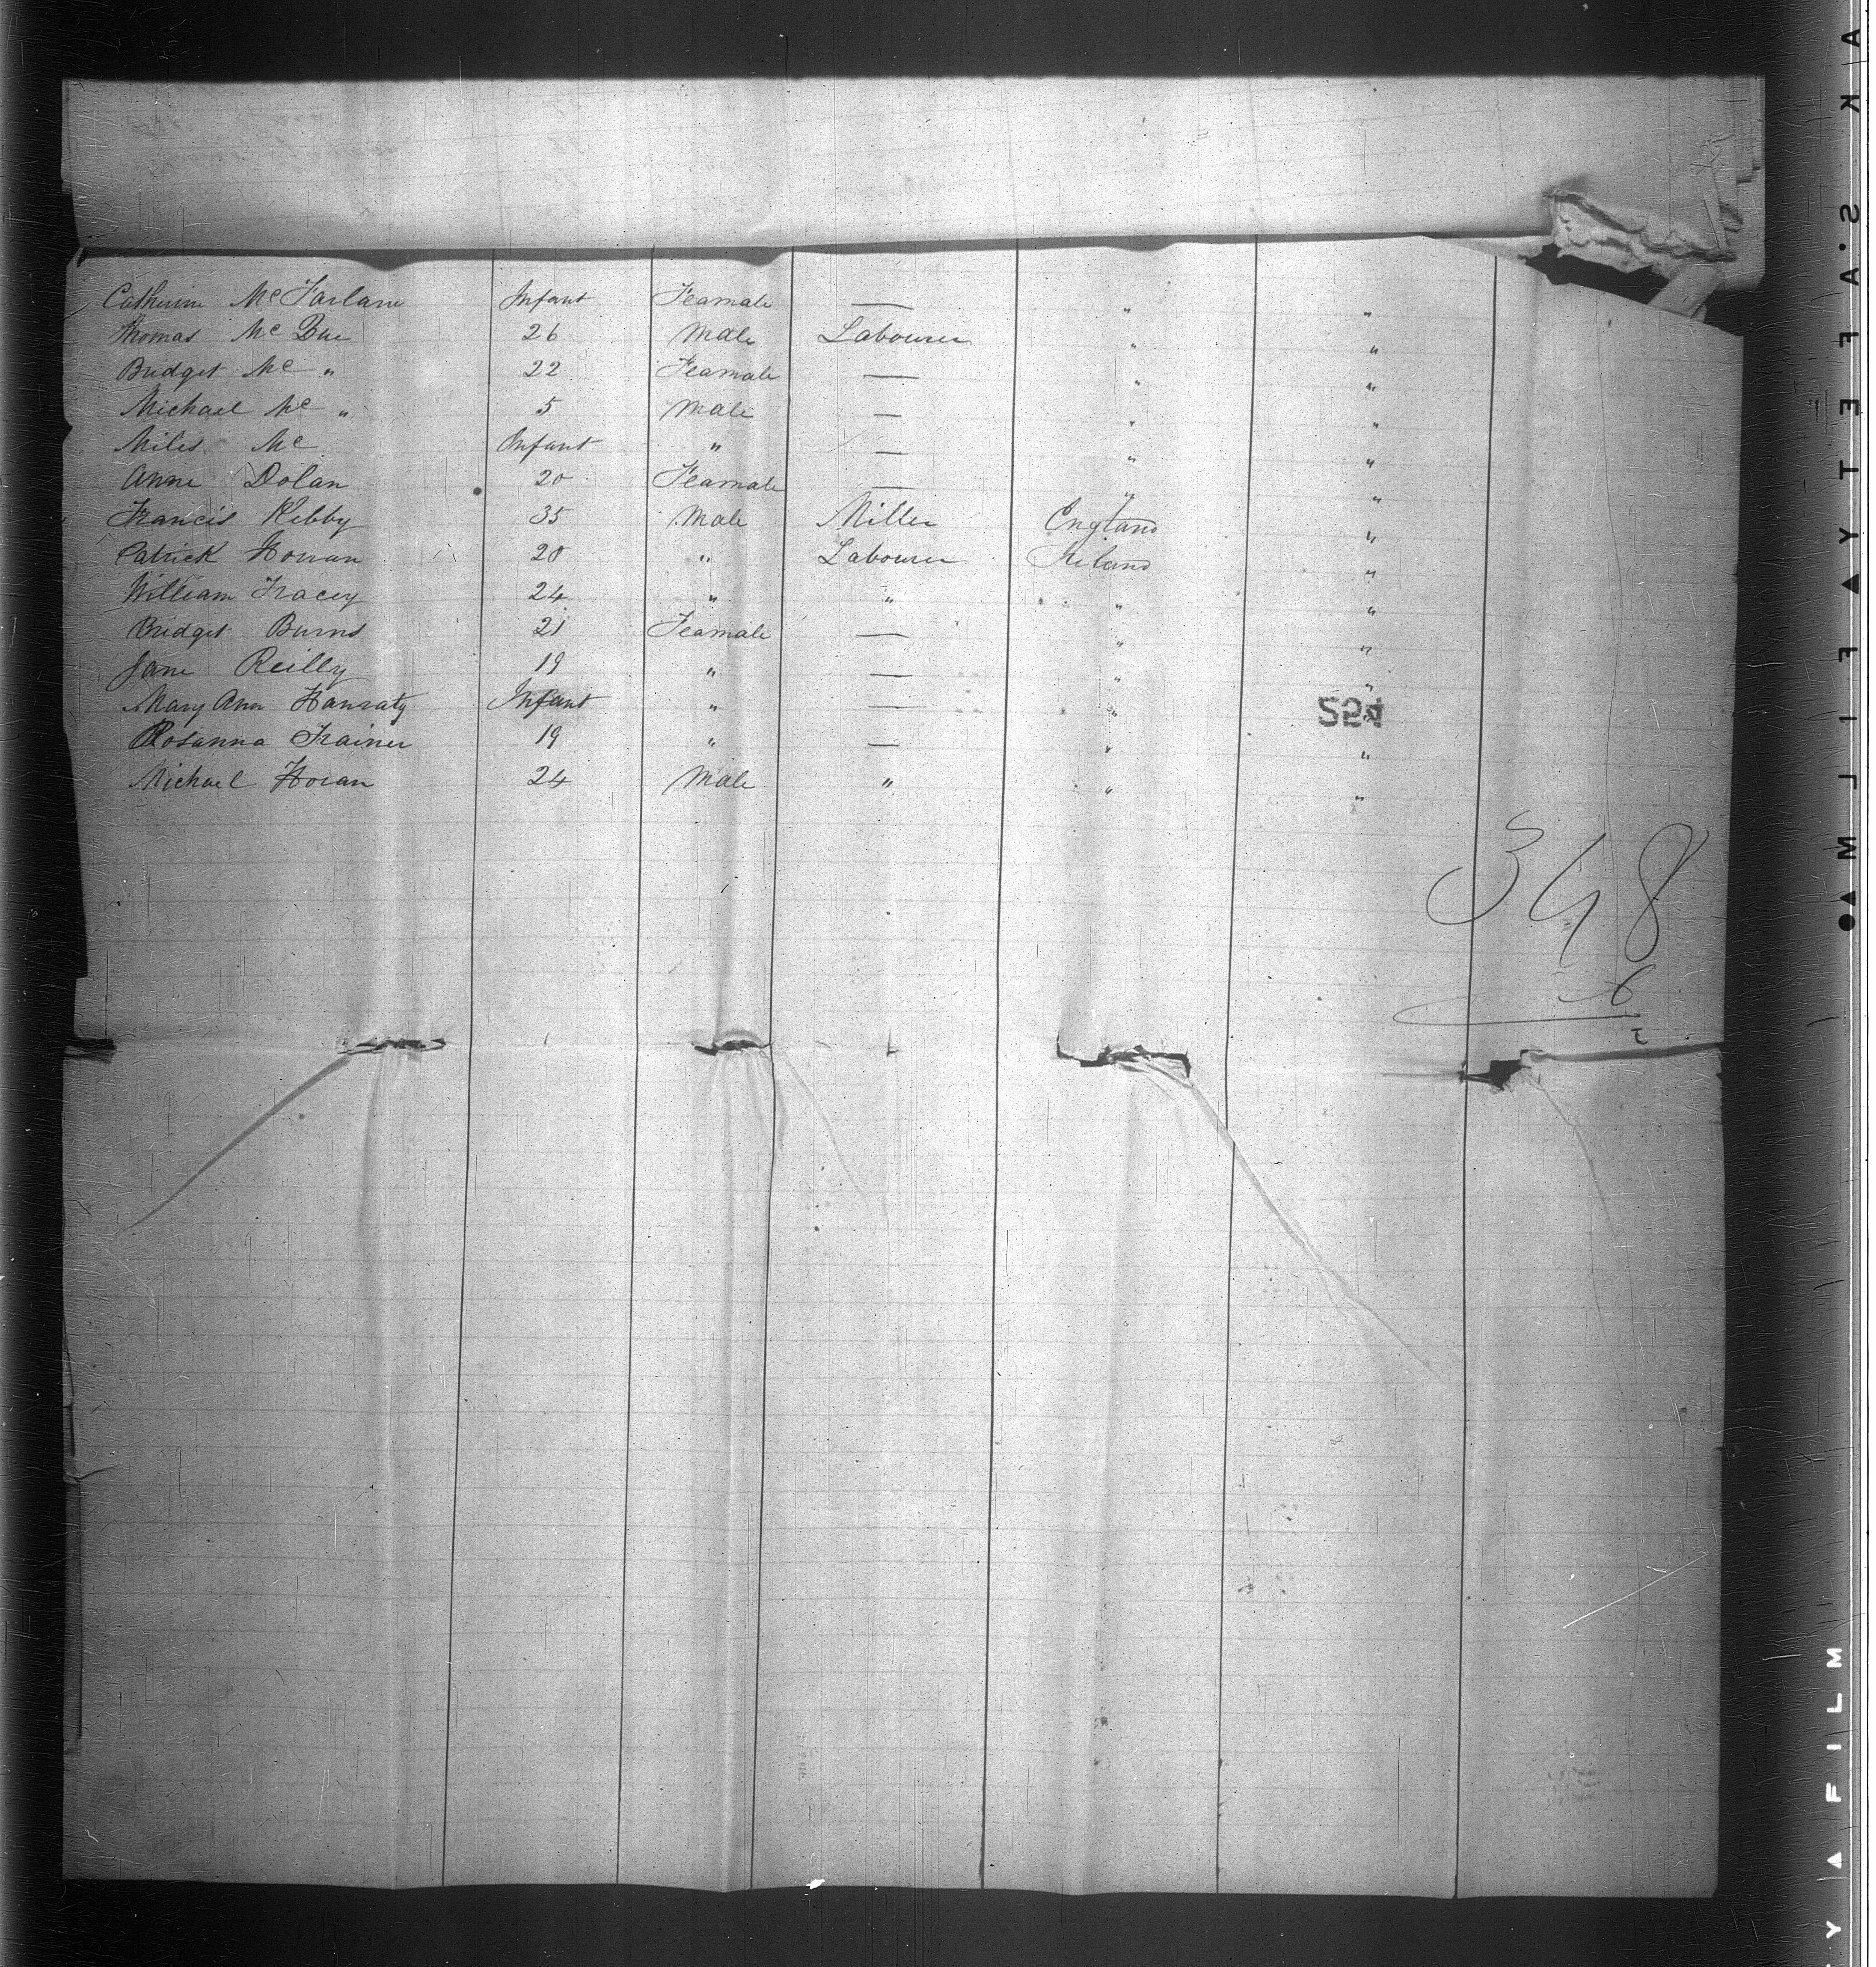 Catherine McFarlane Infant Feamale — " "
Thomas McBue 26 Male Labourer " "
Bridget Mc " 22 Feamale — " "
Michael Mc " 5 Male — " "
Miles Mc Infant " — " "
Anne Dolan 20 Feamale — " "
Francis Kibby 35 Male Miller England "
Patrick 20 " Labourer Ireland "
William Tracey 24 " " " "
Bridget Burns 21 Feamale — " "
Jane Reilly 19 " — " "
Mary Ann Hanraty Infant " — " "
524
Rosanna Trainer 19 " — " "
Michael Horan 24 Male " " "
348
6
SAFETY▲FILM